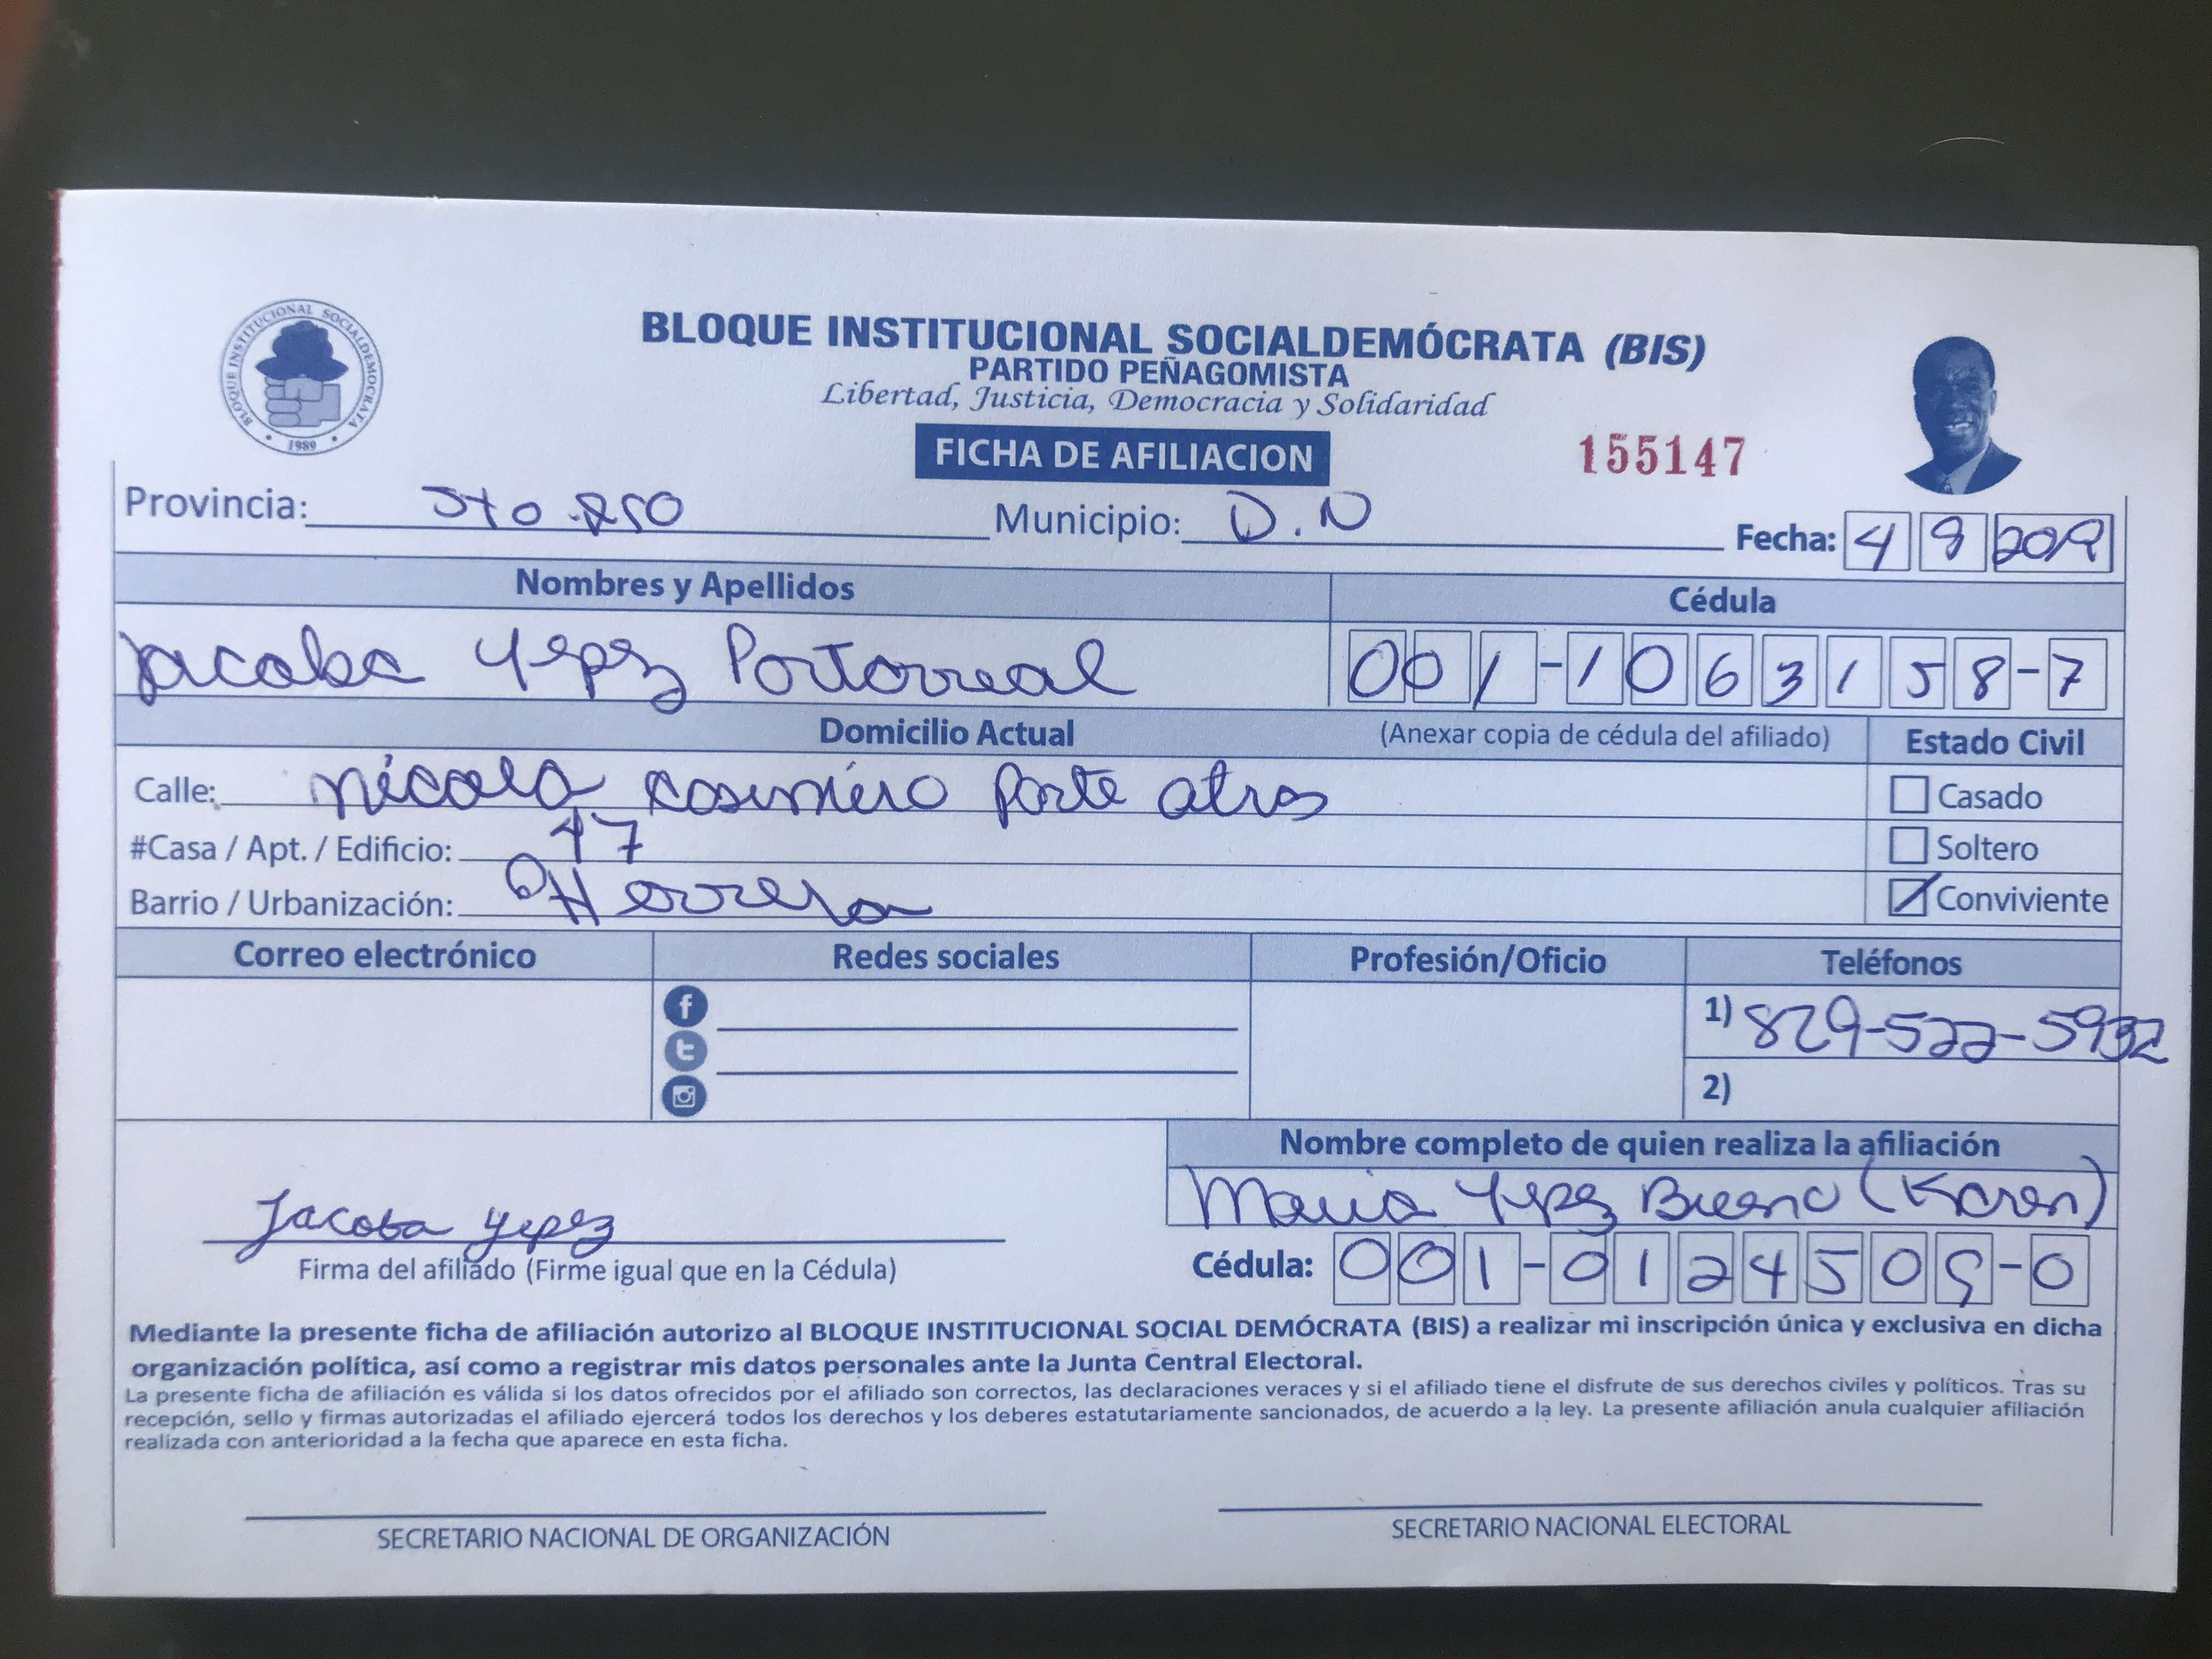 BLOQUE INSTITUCIONAL SOCIALDEMOCRATA
1989
BLOQUE INSTITUCIONAL SOCIALDEMÓCRATA (BIS)
PARTIDO PEÑAGOMISTA
Libertad, Justicia, Democracia y Solidaridad
FICHA DE AFILIACION
155147
Provincia: Sto Municipio: D.N Fecha: 4 9 2019
Nombres y Apellidos Cédula
Jacoba Yepez Portorreal 001-1063158-7
Domicilio Actual (Anexar copia de cédula del afiliado) Estado Civil
Calle: Casimiro Parte atras Casado
#Casa / Apt. / Edificio: 47 Soltero
Barrio / Urbanización: Herrera Conviviente
Correo electrónico Redes sociales Profesión/Oficio Teléfonos
1) 829-522-5932
2)
Nombre completo de quien realiza la afiliación
Maria Yepez Bueno (Karen)
Jacoba Yepez
Firma del afiliado (Firme igual que en la Cédula)
Cédula: 001-0124509-0
Mediante la presente ficha de afiliación autorizo al BLOQUE INSTITUCIONAL SOCIAL DEMÓCRATA (BIS) a realizar mi inscripción única y exclusiva en dicha
organización política, así como a registrar mis datos personales ante la Junta Central Electoral.
La presente ficha de afiliación es válida si los datos ofrecidos por el afiliado son correctos, las declaraciones veraces y si el afiliado tiene el disfrute de sus derechos civiles y políticos. Tras su
recepción, sello y firmas autorizadas el afiliado ejercerá todos los derechos y los deberes estatutariamente sancionados, de acuerdo a la ley. La presente afiliación anula cualquier afiliación
realizada con anterioridad a la fecha que aparece en esta ficha.
SECRETARIO NACIONAL DE ORGANIZACIÓN SECRETARIO NACIONAL ELECTORAL